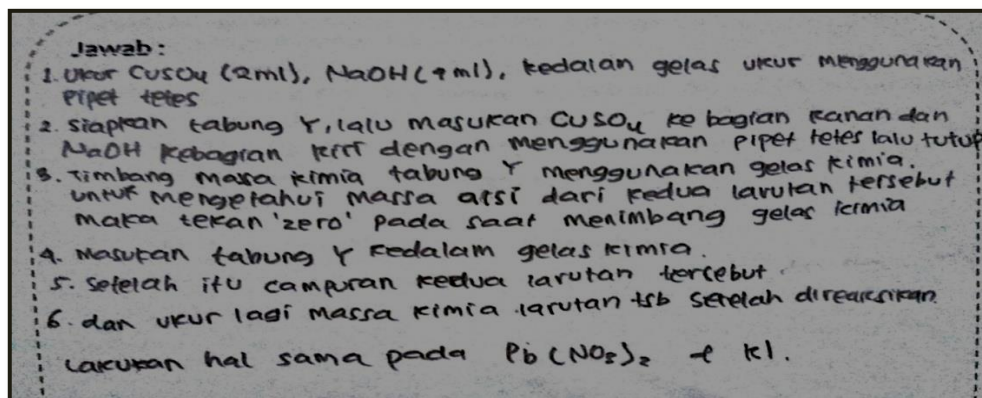 Jawab:
1. Ukur CuSO4 (2ml), NaOH (4ml), kedalan gelas ukur menggunakan
pipet tetes
2. Siapkan tabung Y, lalu masukan CuSO4 ke bagian kanan dan
NaOH kebagian kiri dengan menggunakan pipet tetes lalu tutup
3. Timbang massa kimia tabung Y menggunakan gelas kimia.
untuk mengetahui massa atsi dari kedua larutan tersebut
maka tekan 'zero' pada saat menimbang gelas kimia
4. Masukan tabung Y kedalam gelas kimia.
5. Setelah itu campuran kedua larutan tersebut.
6. dan ukur lagi massa kimia larutan tsb setelah direaksikan
Lakukan hal sama pada Pb(NO3)2 + KI.